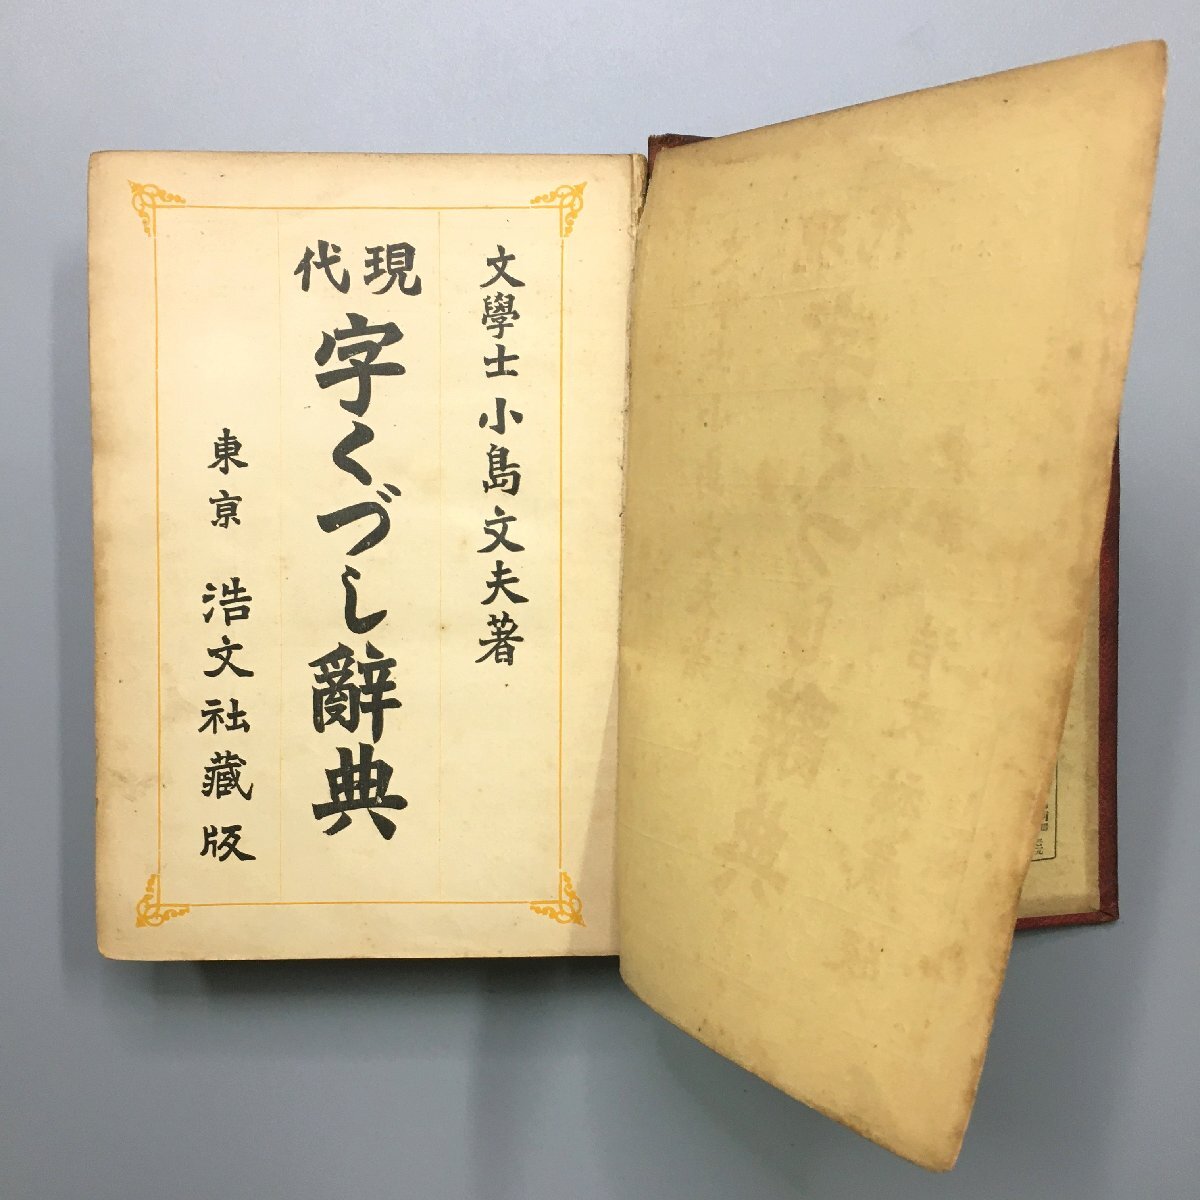 文學士 小島文夫著
現代
字くづし辭典
東京 浩文社藏版